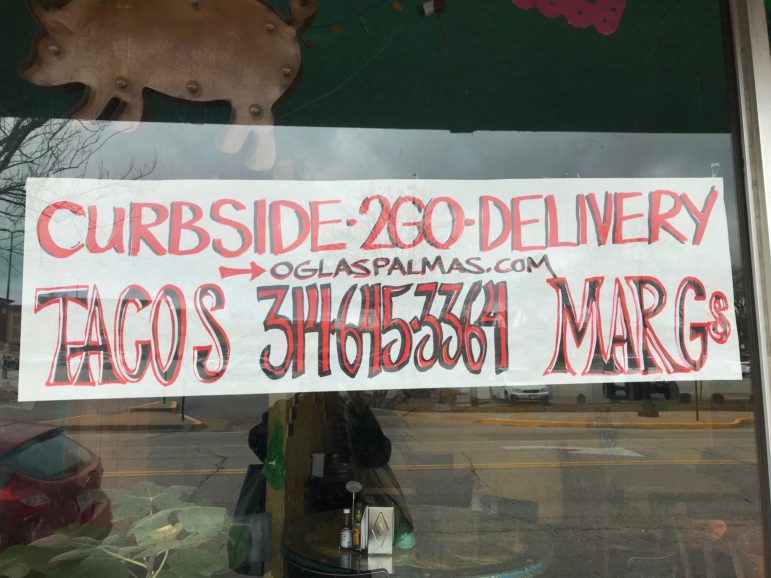 CURBSIDE·2GO·DELIVERY
→ OGLASPALMAS.COM
TACOS 314·645·3364 MARGS